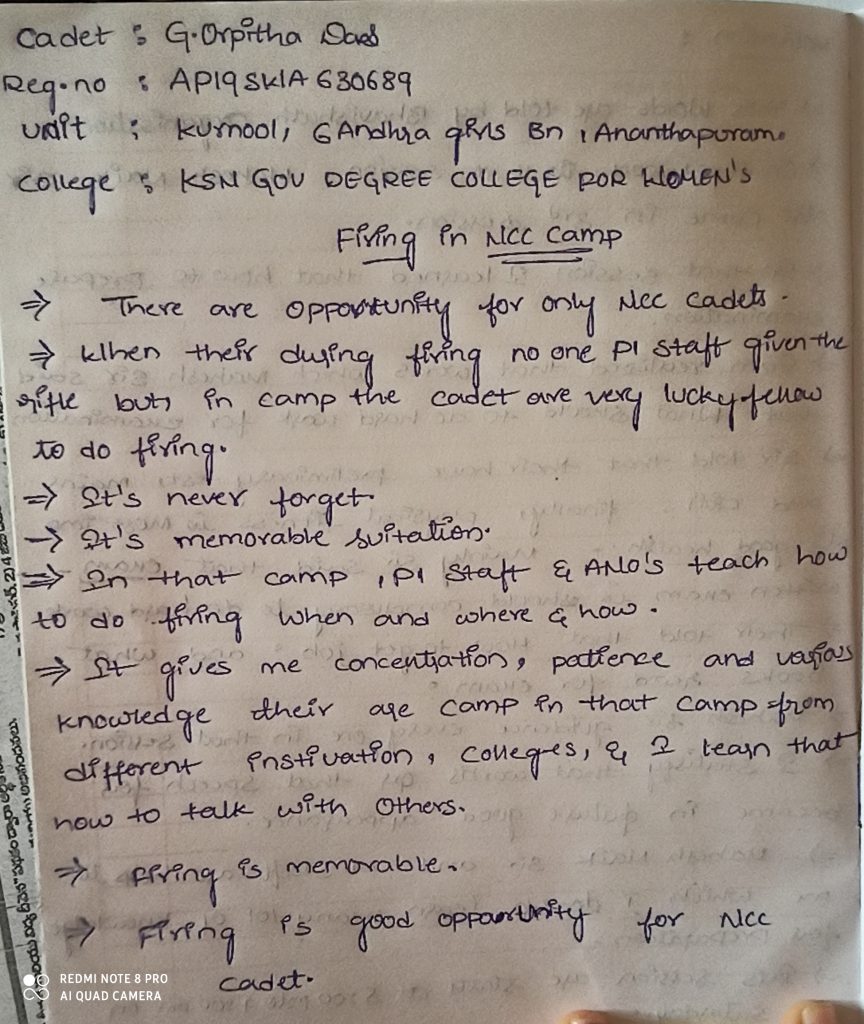 Cadet : G.Orpitha Das
Reg.no : AP19SWA630689
unit : Kurnool, 6 Andhra girls Bn , Ananthapuram.
college : KSN GOV DEGREE COLLEGE FOR WOMEN'S
Firing in NCC Camp
⇒ There are opportunity for only Ncc cadets.
⇒ When their during firing no one PI staff given the
rifle but, in camp the cadet are very lucky fellow
to do firing.
⇒ It's never forget.
→ It's memorable suitation.
⇒ In that camp , PI Staff & ANO's teach how
to do firing when and where & how.
⇒ It gives me concentration, patience and various
knowledge their are camp in that camp from
different instivation, colleges, & I learn that
how to talk with others.
⇒ firing is memorable.
⇒ Firing is good opportunity for Ncc
cadet.
REDMI NOTE 8 PRO
AI QUAD CAMERA